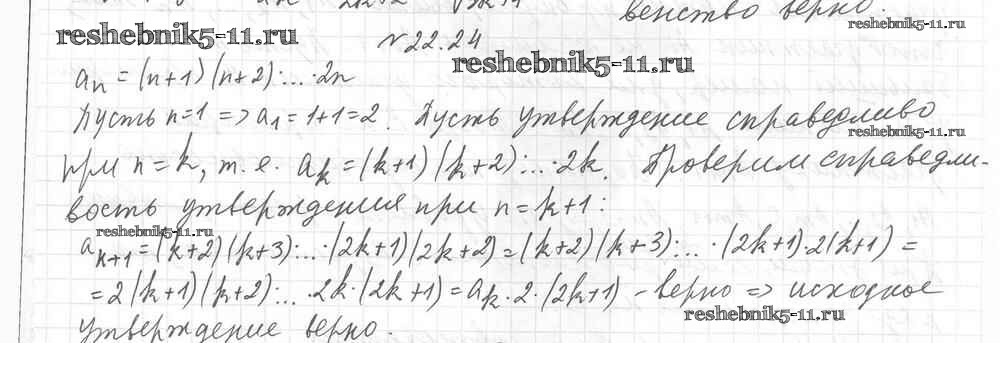 венство верно.
reshebnik5-11.ru
reshebnik5-11.ru
№22.24
reshebnik5-11.ru
aₙ = (n+1)(n+2)·...·2n
Пусть n=1 => a₁=1+1=2. Пусть утверждение справедливо
reshebnik5-11.ru
при n=k, т.е. aₖ=(k+1)(k+2)·...·2k. Проверим справедли-
вость утверждения при n=k+1:
reshebnik5-11.ru
aₖ₊₁=(k+2)(k+3)·...·(2k+1)(2k+2)=(k+2)(k+3)·...·(2k+1)·2(k+1)=
=2(k+1)(k+2)·...·2k·(2k+1)=aₖ·2·(2k+1) - верно => исходное
reshebnik5-11.ru
утверждение верно.